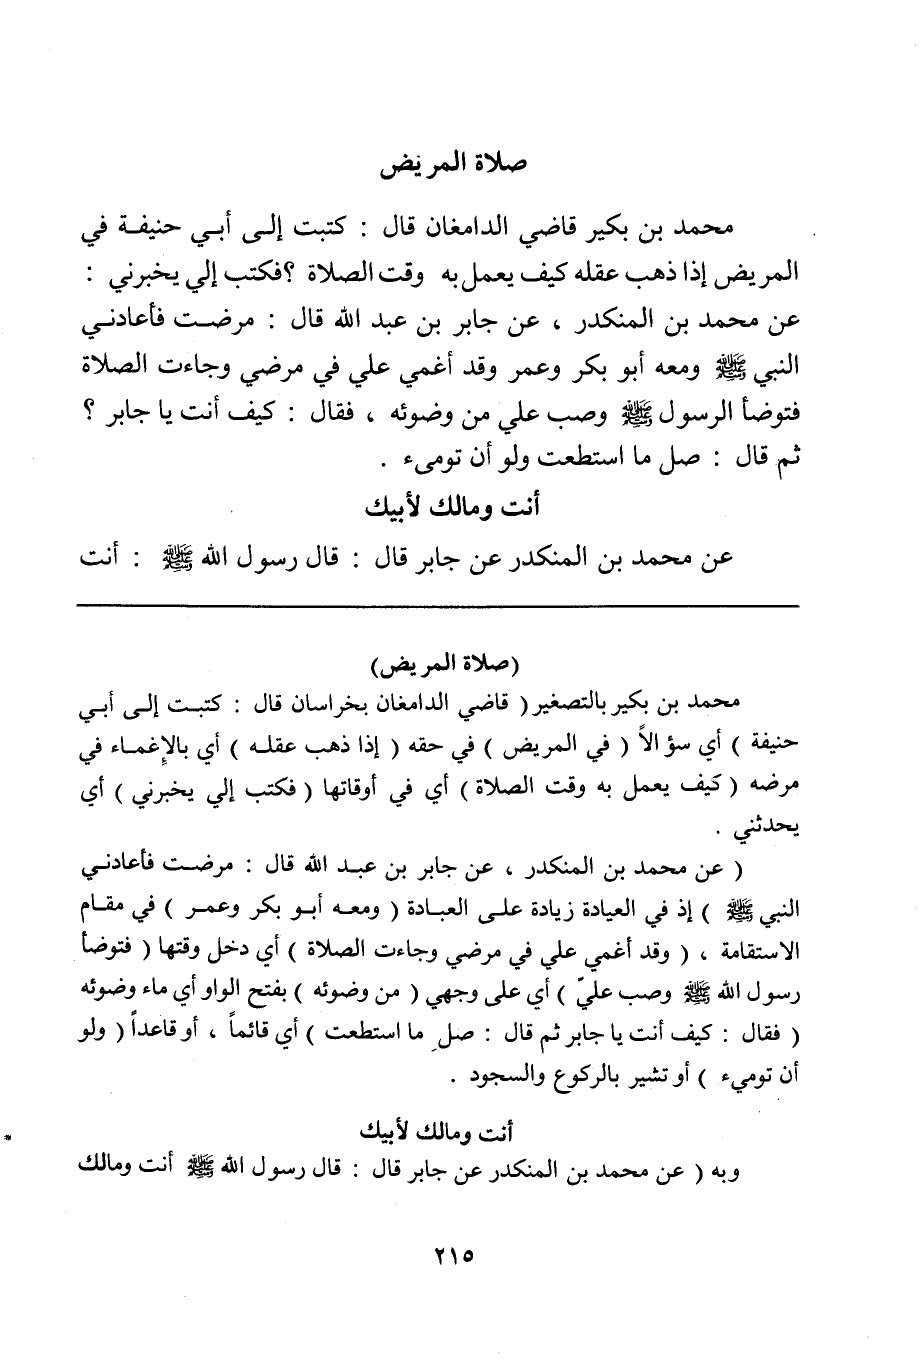 صلاة المريض
محمد بن بكير قاضي الدامغان قال : كتبت إلى أبي حنيفة في
المريض إذا ذهب عقله كيف يعمل به وقت الصلاة ؟ فكتب إلي يخبرني :
عن محمد بن المنكدر ، عن جابر بن عبد الله قال : مرضت فأعادني
النبي ﷺ ومعه أبو بكر وعمر وقد أغمي علي في مرضي وجاءت الصلاة
فتوضأ الرسول ﷺ وصب علي من وضوئه ، فقال : كيف أنت يا جابر ؟
ثم قال : صل ما استطعت ولو أن تومىء .
أنت ومالك لأبيك
عن محمد بن المنكدر عن جابر قال : قال رسول الله ﷺ : أنت
(صلاة المريض)
محمد بن بكير بالتصغير ( قاضي الدامغان بخراسان قال : كتبت إلى أبي
حنيفة ) أي سؤالاً ( في المريض ) في حقه ( إذا ذهب عقله ) أي بالإغماء في
مرضه ( كيف يعمل به وقت الصلاة ) أي في أوقاتها ( فكتب إلي يخبرني ) أي
يحدثني .
( عن محمد بن المنكدر ، عن جابر بن عبد الله قال : مرضت فأعادني
النبي ﷺ ) إذ في العيادة زيادة على العبادة ( ومعه أبو بكر وعمر ) في مقام
الاستقامة ، ( وقد أغمي علي في مرضي وجاءت الصلاة ) أي دخل وقتها ( فتوضأ
رسول الله ﷺ وصب عليّ ) أي على وجهي ( من وضوئه ) بفتح الواو أي ماء وضوئه
( فقال : كيف أنت يا جابر ثم قال : صلِ ما استطعت ) أي قائماً ، أو قاعداً ( ولو
أن توميء ) أو تشير بالركوع والسجود .
أنت ومالك لأبيك
وبه ( عن محمد بن المنكدر عن جابر قال : قال رسول الله ﷺ أنت ومالك
٢١٥